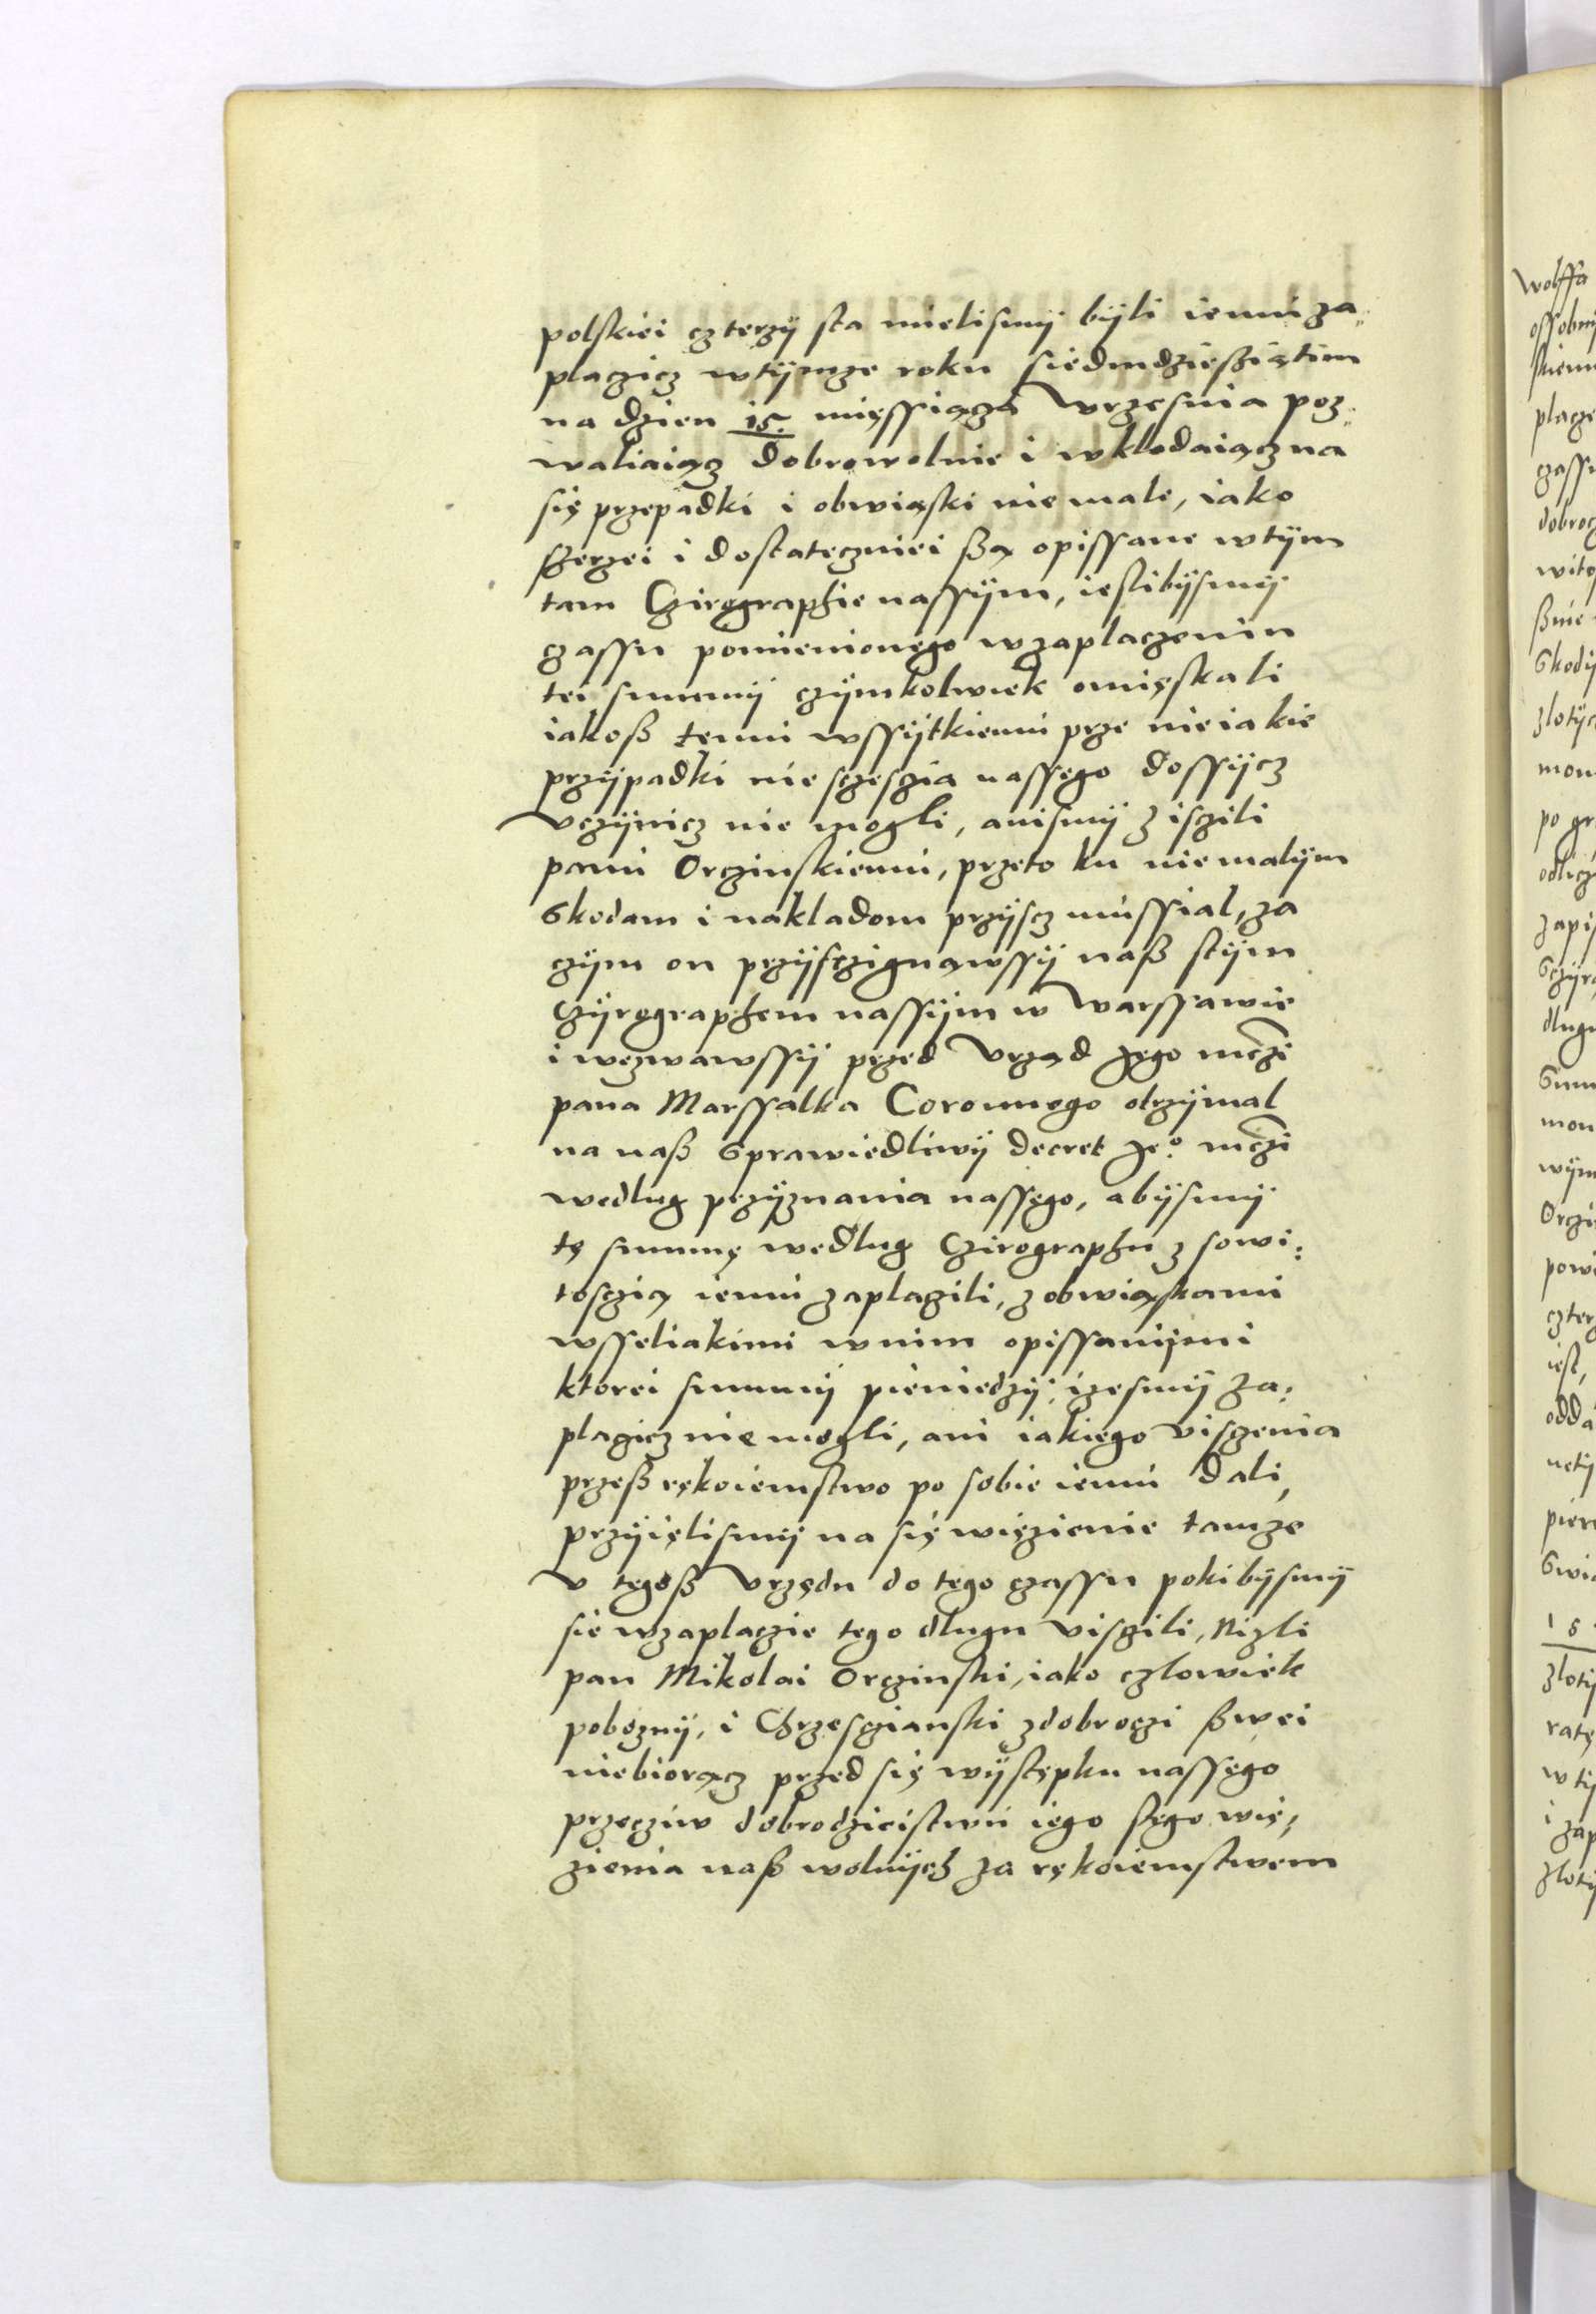 polskiei czterzÿ sta mielismÿ bÿli iemu za„
placzicz wtÿmze roku siedmdziesziątim
na dzien 15. mięssiącza Wrzesnia poz„
waliaiącz dobrowolnie i wklodaiącz na
się przepadki i obwiąski nie małe, iako
szerzei i dostateczniei ßą opissane wtÿm
tam Czirographie nassÿm, iestibÿsmÿ
czassu pomienionego wzaplaczeniu
tei summÿ czÿmkolwiek omięskali
iakoß temu wssÿtkiemu prze nieiakie
przÿpadki niesczeszia nassego dossÿcz
vczÿnicz nie mogli, anismÿ ziszili
panu Orczinskiemu, przeto ku niemalÿm
skodam i nakladom przÿscz mussial, za
czÿm on przÿsczignąwssÿ naß stÿm
Czÿrographem nassÿm w Warssawie
i wezwawssÿ przed Vrząd Jego mczi
pana Marssalka Coronnego otrzÿmal
na naß sprawiedliwÿ decret Jeo mczi
wedlug przÿznania nassego, abÿsmÿ
tę summę wedlug Czirographu z sowi:
tosczią iemu zaplazili, z obwiąskami
wsseliakimi wnim opissanÿmi
ktorei summÿ pieniedzÿ, izesmÿ za:
plazicz nie mogli, ani iakiego viszenia
przeß rękoiemstwo po sobie iemu dali,
przÿięlismÿ na się więzienie tamze
v tegoß Vrzędu do tego czassu pokibÿsmÿ
sie wzaplaczie tego dlugu viszili, Nizli
pan Mikolai Orczinski, iako czlowiek
poboznÿ, i Chrzesczianski zdobroczi ßwei
niebiorącz przed się wÿstępku nassego
przecziw dobrodzieistwu iego stego wię:
zienia naß wolnÿch za rękoiemstwem